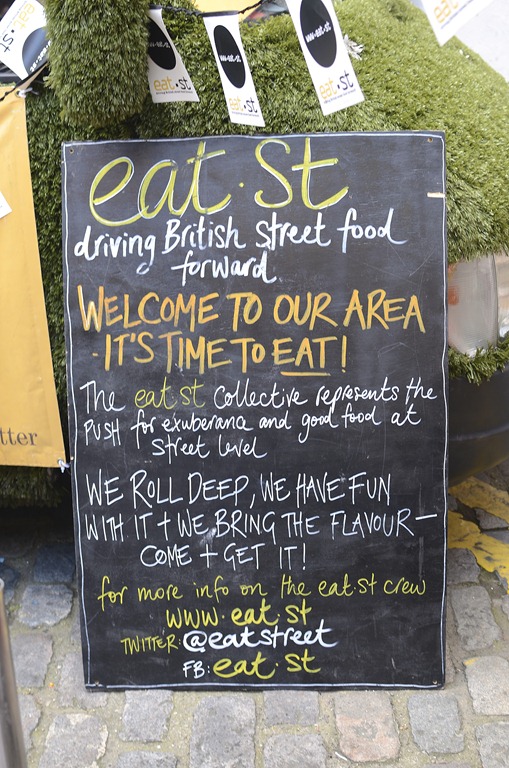 eat.st
www.eat.st
eat.st
www.eat.st
eat.st
www.eat.st
eat.st
eat.st
driving British street food
forward
WELCOME TO OUR AREA
- IT'S TIME TO EAT!
The eat.st Collective represents the
PUSH for exuberance and good food at
street level
WE ROLL DEEP, WE HAVE FUN
WITH IT + WE BRING THE FLAVOUR —
COME + GET IT!
for more info on the eat.st crew
www.eat.st
TWITTER: @eatstreet
FB: eat.st
tter